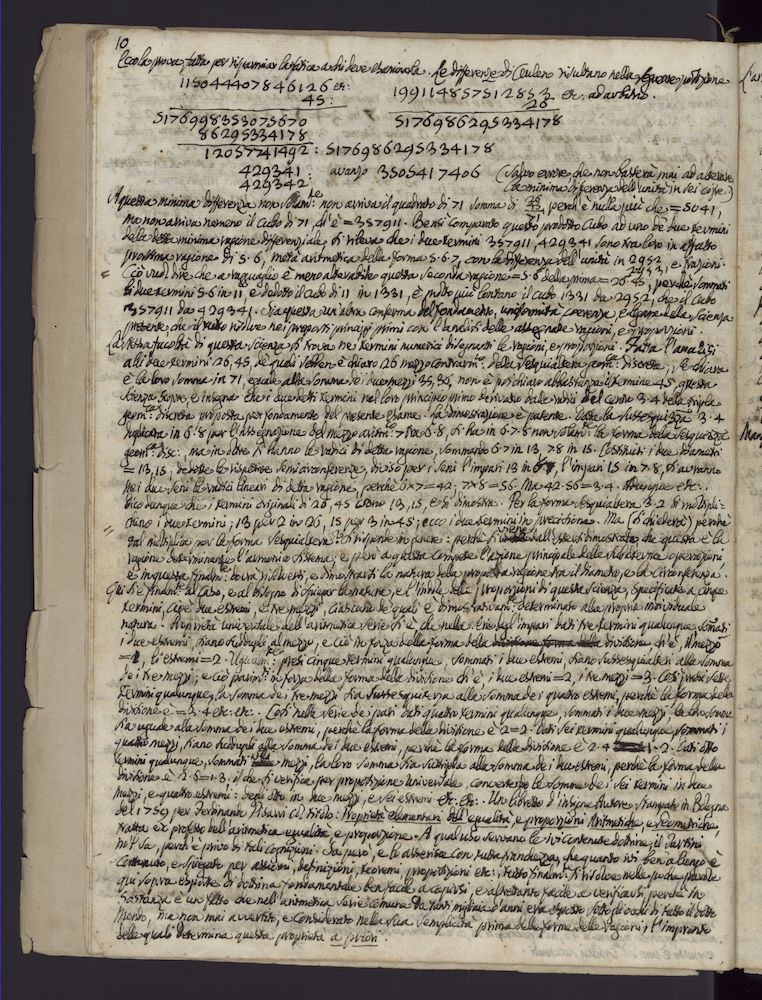 10
Ecco la prova fatta per risparmiar la fatica a chi deve esaminarla. Le differenze di Ceulen risultano nella equazione
11504440784 6126 etc. 1991148575128 53 etc. ad arbitrio.
45: 26
517699835307 5670 51769862953 34178
86295334178
1205774 1492: 51769862953 34178
429341: avanzo 3505417406 (Salvo errore, che non basterà mai ad alterare
429342 la minima differenza dell'unità in sei cifre.)
A questa minima differenza non solam.te non arriva il quadrato di 71 somma di 26/45, perch'è nulla più che = 5041,
ma non arriva nemeno il Cubo di 71, ch'è = 357911. Bensì comparato questo prodotto Cubo ad uno de due termini
della detta minima ragione differenziale, si rileva che i due termini 357911, 429341 sono tra loro in affatto
prossima ragione di 5.6, metà aritmetica della forma 5.6.7, con la differenza dell'unità in 2952
Ciò vuol dire che a ragguaglio è meno alterabile questa seconda ragione = 5.6 della prima = 26.45, perché sommati
li due termini 5.6 in 11, e dedotto il Cubo di 11 in 1331, è molto più lontano il Cubo 1331 da 2952, che il Cubo
357911 da 429341. Sia questa un'altra conferma del fondamento, uniformità, coerenza, e vigore della Scienza
presente, che il tutto riduce nei proposti principj primi con l'analisi delle assegnate ragioni, e proporzioni
La stessa facoltà di questa Scienza si trova ne termini numerici disgiunti le ragioni, e proporzioni. Fatta l'analisi
alli due termini 26, 45, de quali sebben è chiaro 26 mezzo contrarm.co della Sesquialtera geom.ca discreta; se chiara
è la loro somma in 71, eguale alla somma de i due mezzi 35, 36, non è poi chiaro abbastanza il termine 45, questa
Scienza scopre, e insegna che i due detti termini nel loro principio primo derivano dalle radici del centro 3.4 della tripla
geom.ca discreta proposta per fondamento del presente esame. La dimostrazione è patente. Data la sesquiterza 3.4
duplicata in 6.8 per l'assegnazione del mezzo aritm.co 7 tra 6.8, si ha in 6.7.8 non solam.te la forma della sesquiterza
geom.ca disc: ma in oltre si hanno le radici di detta ragione, sommando 6.7 in 13, 7.8 in 15. Costituiti i due diametri
= 13, 15, dedotte le rispettive semicirconferenze, diviso per i seni l'impari 13 in 6.7, l'impari 15 in 7.8, si avranno
nei due seni le radici lineari di detta ragione, perché 6×7=42; 7×8=56. Ma 42.56=3.4. Adunque etc.
Dico dunque che i termini originali di 26, 45 sono 13, 15, e si dimostra. Per la forma sesquialtera 3.2 si moltipli=
chino i due termini; 13 per 2 in 26, 15 per 3 in 45; ecco i due termini in precisione. Ma (si chiederà) perché
tal moltiplica per la forma sesquialtera? Si risponde in genere: perché viene dall'esser dimostrato, che questa è la
ragione determinante l'armonico sistema; e però a questa compete l'azione principale delle suddette operazioni,
e in questa finalm.te dovrà risolversi, e dimostrarsi la natura della proposta ragione tra il diametro, e la circonferenza.
Qui si è finalm.te al caso, e al bisogno di spiegar la natura, e l'indole delle proporzioni di questa Scienza, specificate a cinque
termini, cioè due estremi, e tre mezzi, ciascuno de quali è dimostrativam.te determinato alla propria individuale
natura. Proprietà universale dell'aritmetica serie si è, che nella serie degl'impari dati tre termini qualunque, sommati
i due estremi, siano sudupli al mezzo, e ciò in forza della forma della divisione, ch'è, il mezzo
=1, li estremi=2. Ugualm.te presi cinque termini qualunque, sommati i due estremi, siano subsesquialteri alla somma
de i tre mezzi; e ciò parim.ti in forza della forma della divisione ch'è, i due estremi=2, i tre mezzi=3. Così presi sette
termini qualunque, la somma de i tre mezzi sia subsesquiterza alla somma de i quattro estremi, perché la forma della
divisione è = 3.4 etc. etc. Così nella serie de i pari dati quattro termini qualunque, sommati i due mezzi, la loro somma
sia uguale alla somma de i due estremi, perché la forma della divisione è 2=2. Dati sei termini qualunque, sommati i
quattro mezzi, siano dupli alla somma dei due estremi, perché la forma della divisione è 2.4 = 1.2. Dati otto
termini qualunque, sommati i mezzi, la loro somma sia subtripla alla somma de i due estremi, perché la forma della
divisione è 2.6=1.3. il che si verifica per proporzione universale, convertendo le somme de i sei termini in due
mezzi, e quattro estremi: degli otto in due mezzi, e sei estremi etc. etc. Un libretto d'insigne Autore stampato in Bologna
del 1759 per Ferdinando Pisarri col titolo: Proprietà elementari dell'equalità, e proporzioni Aritmetiche, e Geometriche,
tratta ex professo dell'aritmetica equalità, e proporzione. A qual uso servano le ivi contenute dottrine, il Tartini
nol sa, perch'è privo di tali cognizioni. Sa però, e lo asserisce con tutta franchezza, che quanto ivi ben a lungo è
contenuto, e spiegato per assiomi, definizioni, teoremi, proposizioni etc., tutto finalm.te si risolve nelle poche parole
qui sopra esposte di dottrina fondamentale ben facile a capirsi, e altrettanto facile a verificarsi, perché in
sostanza è un fatto che nell'aritmetica serie comune da tanti migliaia d'anni era esposto sotto gl'occhi di tutto il dotto
Mondo, ma non mai avvertito, e considerato nella sua semplicità prima della forma delle ragioni, l'impronto
delle quali determina questa proprietà a priori.